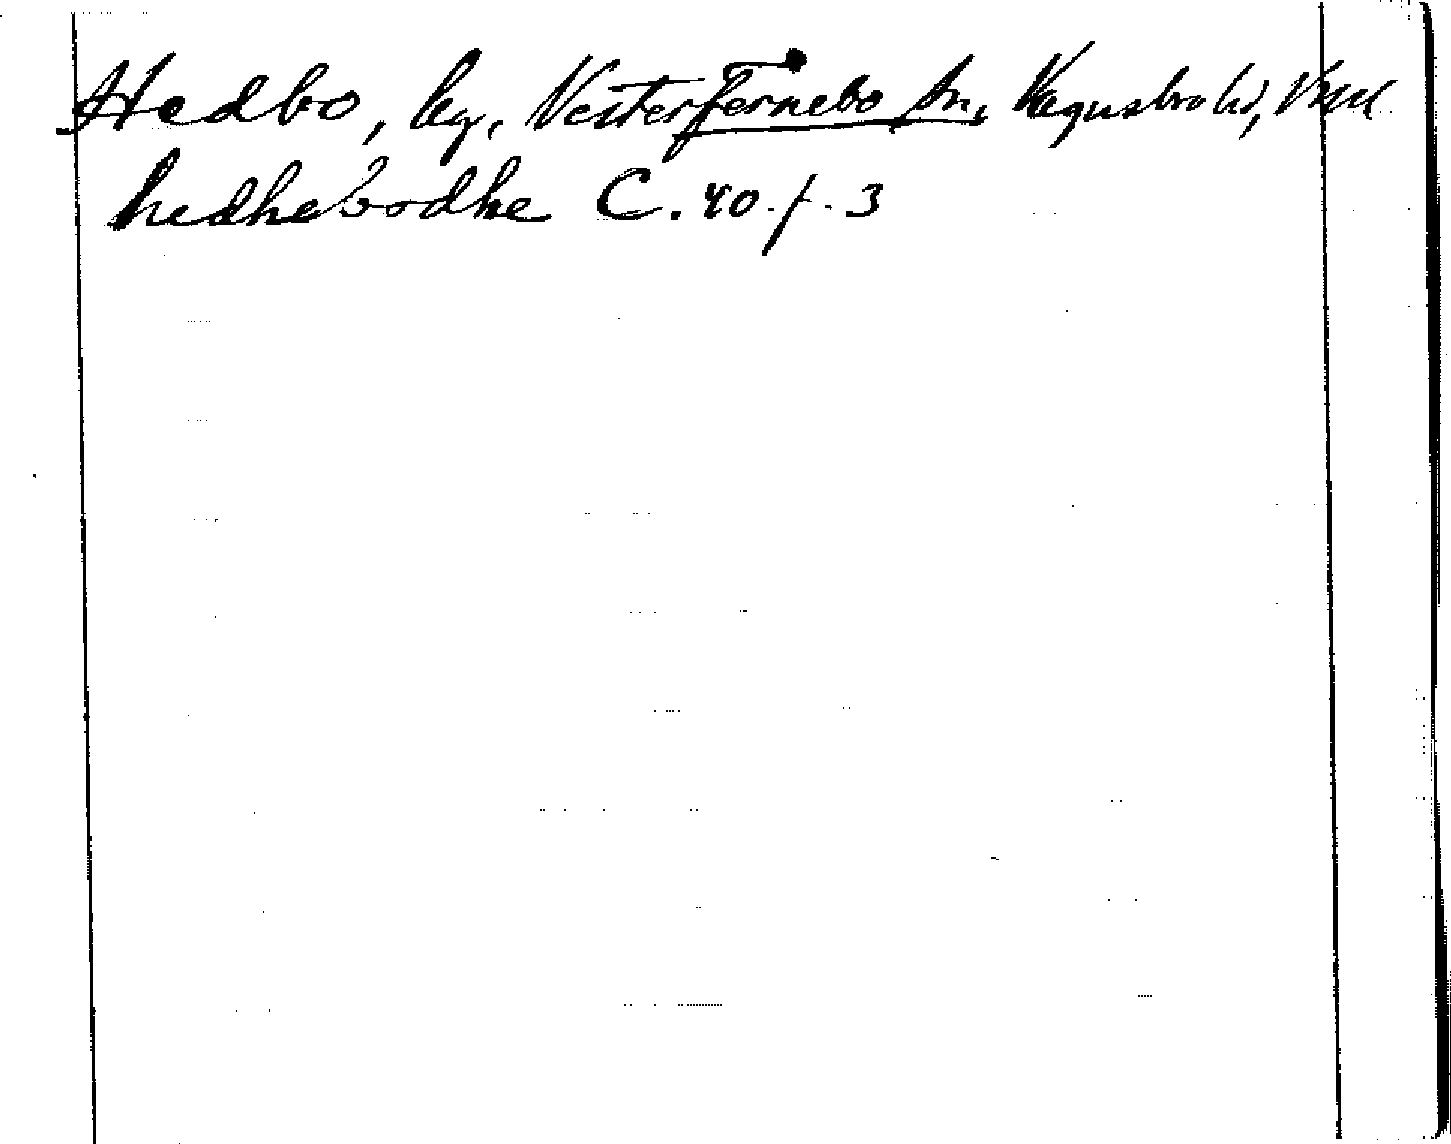 Hedbo, by, Vesterfernebo sn, Vagnsbro hd, Vml
hedhebodhe C. 40. f. 3